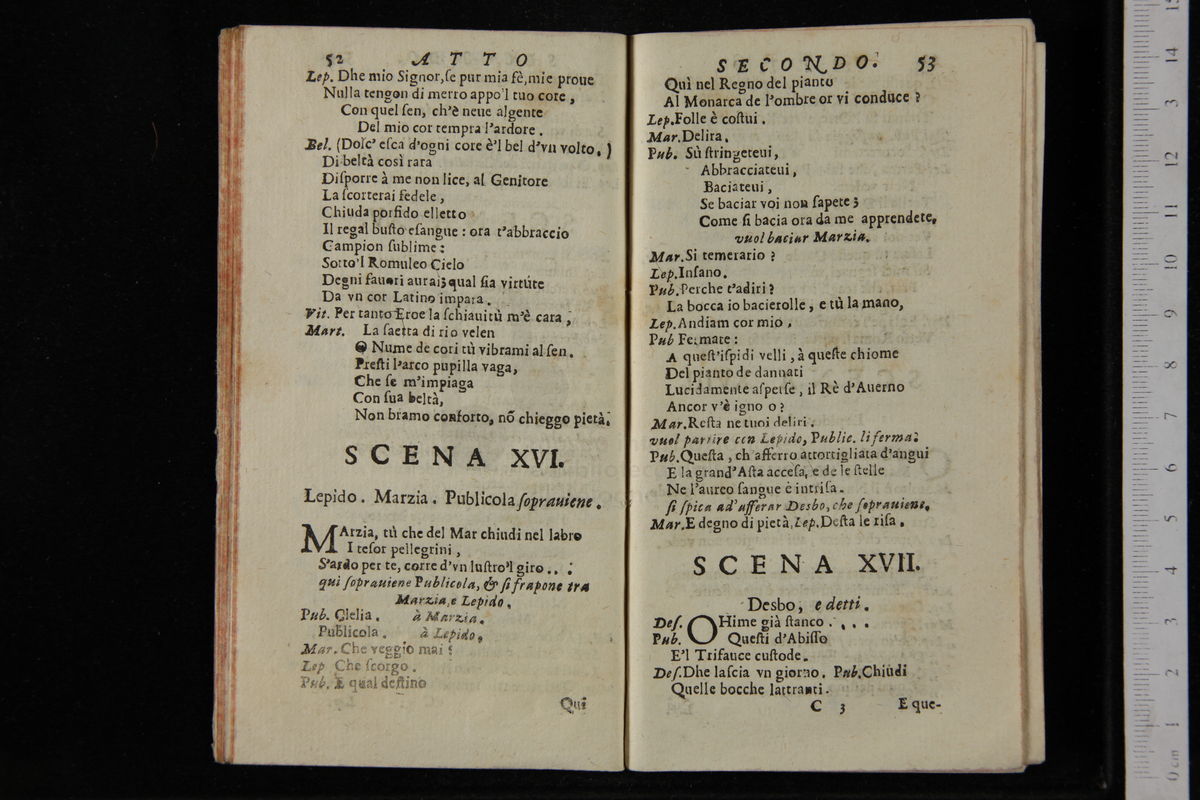 52 ATTO
Lep. Dhe mio Signor, ſe pur mia fè, mie proue
Nulla tengon di merto appo'l tuo core,
Con quel ſen, ch'è neue algente
Del mio cor tempra l'ardore.
Bel. (Dolc' eſca d'ogni core è'l bel d'vn volto.)
Di beltà così rara
Diſporre à me non lice, al Genitore
La ſcorterai fedele,
Chiuda porfido elletto
Il regal buſto eſangue: ora t'abbraccio
Campion ſublime:
Sotto'l Romuleo Cielo
Degni fauori aurai; qual ſia virtúte
Da vn cor Latino impara.
Vit. Per tanto Eroe la ſchiauitù m'è cara;
Mart. La ſaetta di rio velen
O Nume de cori tù vibrami al ſen.
Preſti l'arco pupilla vaga,
Che ſe m'impiaga
Con ſua beltà,
Non bramo conforto, nō chieggo pietà.
SCENA XVI.
Lepido. Marzia. Publicola ſoprauiene.
MArzia, tù che del Mar chiudi nel labro
I teſor pellegrini,
S'ardo per te, corre d'vn luſtro'l giro..:
qui ſoprauiene Publicola, & ſi frapone tra
Marzia, e Lepido.
Pub. Clelia. à Marzia.
Publicola. à Lepido.
Mar. Che veggio mai?
Lep Che ſcorgo.
Pub. E qual deſtino
Qui
SECONDO. 53
Quì nel Regno del pianto
Al Monarca de l'ombre or vi conduce?
Lep. Folle è coſtui.
Mar. Delira.
Pub. Sù ſtringeteui,
Abbracciateui,
Baciateui,
Se baciar voi non ſapete;
Come ſi bacia ora da me apprendete.
vuol baciar Marzia.
Mar. Si temerario?
Lep. Inſano.
Pub. Perche t'adiri?
La bocca io bacierolle, e tù la mano,
Lep. Andiam cor mio,
Pub Fermate:
A queſt'iſpidi velli, à queſte chiome
Del pianto de dannati
Lucidamente aſperſe, il Rè d'Auerno
Ancor v'è igno o?
Mar. Reſta ne tuoi deliri.
vuol partire con Lepido, Public. li ferma.
Pub. Queſta, ch'afferro attortigliata d'angui
E la grand'Aſta acceſa, e de le ſtelle
Ne l'aureo ſangue è intriſa.
ſi ſpica ad'afferar Desbo, che ſoprauiene.
Mar. E degno di pietà. Lep. Deſta le riſa.
SCENA XVII.
Desbo, e detti.
Deſ. OHime già ſtanco....
Pub. Queſti d'Abiſſo
E'l Trifauce cuſtode.
Deſ. Dhe laſcia vn giorno. Pub. Chiudi
Quelle bocche lattranti.
C 3 E que-